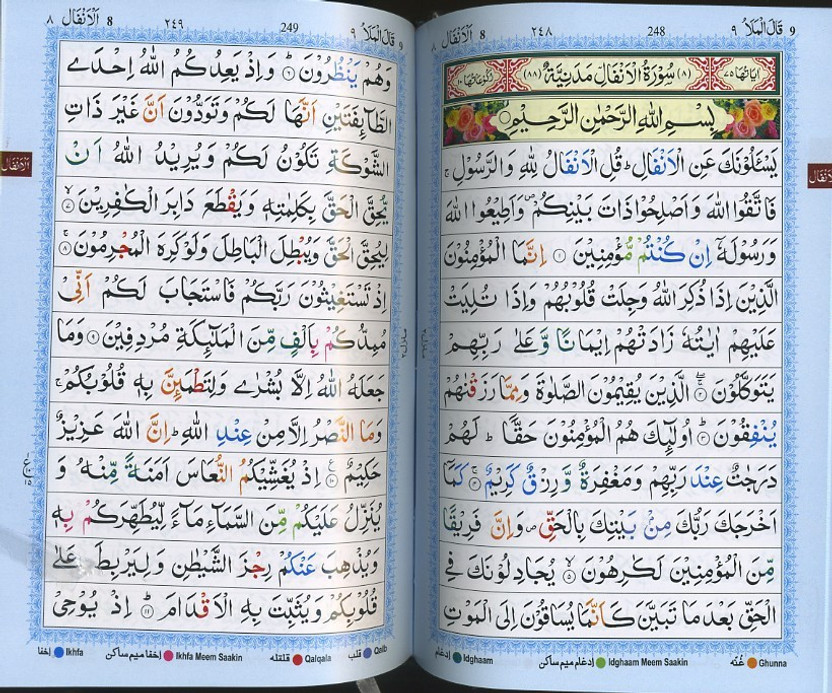 9 قَالَ الْمَلَاُ ٩
248
٢٤٨
8 اَلْاَنْفَال ٨
اٰيَاتُهَا ٧٥
(٨) سُوْرَةُ الْاَنْفَالِ مَدَنِيَّةٌ (٨٨)
رُكُوْعَاتُهَا ١٠
بِسْمِ اللهِ الرَّحْمٰنِ الرَّحِيْمِ
يَسْـَٔلُوْنَكَ عَنِ الْاَنْفَالِ ؕ قُلِ الْاَنْفَالُ لِلّٰهِ وَالرَّسُوْلِ ۚ
فَاتَّقُوا اللهَ وَاَصْلِحُوْا ذَاتَ بَيْنِكُمْ ۪ وَاَطِيْعُوا اللهَ
وَرَسُوْلَهٗۤ اِنْ كُنْتُمْ مُّؤْمِنِيْنَ ۝١ اِنَّمَا الْمُؤْمِنُوْنَ
الَّذِيْنَ اِذَا ذُكِرَ اللهُ وَجِلَتْ قُلُوْبُهُمْ وَاِذَا تُلِيَتْ
عَلَيْهِمْ اٰيٰتُهٗ زَادَتْهُمْ اِيْمَانًا وَّعَلٰى رَبِّهِمْ
يَتَوَكَّلُوْنَ ۝٢ الَّذِيْنَ يُقِيْمُوْنَ الصَّلٰوةَ وَمِمَّا رَزَقْنٰهُمْ
يُنْفِقُوْنَ ۝٣ اُولٰٓئِكَ هُمُ الْمُؤْمِنُوْنَ حَقًّا ؕ لَهُمْ
دَرَجٰتٌ عِنْدَ رَبِّهِمْ وَمَغْفِرَةٌ وَّرِزْقٌ كَرِيْمٌ ۝٤ كَمَاۤ
اَخْرَجَكَ رَبُّكَ مِنْۢ بَيْتِكَ بِالْحَقِّ ۪ وَاِنَّ فَرِيْقًا
مِّنَ الْمُؤْمِنِيْنَ لَكٰرِهُوْنَ ۝٥ يُجَادِلُوْنَكَ فِى
الْحَقِّ بَعْدَ مَا تَبَيَّنَ كَاَنَّمَا يُسَاقُوْنَ اِلَى الْمَوْتِ
اَلْاَنْفَال
غُنّه Ghunna
ادغام میم ساکن Idghaam Meem Saakin
ادغام Idghaam
9 قَالَ الْمَلَاُ ٩
249
٢٤٩
8 اَلْاَنْفَال ٨
وَهُمْ يَنْظُرُوْنَ ۝٦ وَاِذْ يَعِدُكُمُ اللهُ اِحْدَى
الطَّآئِفَتَيْنِ اَنَّهَا لَكُمْ وَتَوَدُّوْنَ اَنَّ غَيْرَ ذَاتِ
الشَّوْكَةِ تَكُوْنُ لَكُمْ وَيُرِيْدُ اللهُ اَنْ
يُّحِقَّ الْحَقَّ بِكَلِمٰتِهٖ وَيَقْطَعَ دَابِرَ الْكٰفِرِيْنَ ۝٧
لِيُحِقَّ الْحَقَّ وَيُبْطِلَ الْبَاطِلَ وَلَوْ كَرِهَ الْمُجْرِمُوْنَ ۝٨
اِذْ تَسْتَغِيْثُوْنَ رَبَّكُمْ فَاسْتَجَابَ لَكُمْ اَنِّىْ
مُمِدُّكُمْ بِاَلْفٍ مِّنَ الْمَلٰٓئِكَةِ مُرْدِفِيْنَ ۝٩ وَمَا
جَعَلَهُ اللهُ اِلَّا بُشْرٰى وَلِتَطْمَئِنَّ بِهٖ قُلُوْبُكُمْ ۚ
وَمَا النَّصْرُ اِلَّا مِنْ عِنْدِ اللهِ ؕ اِنَّ اللهَ عَزِيْزٌ
حَكِيْمٌ ۝١٠ اِذْ يُغَشِّيْكُمُ النُّعَاسَ اَمَنَةً مِّنْهُ وَ
يُنَزِّلُ عَلَيْكُمْ مِّنَ السَّمَآءِ مَآءً لِّيُطَهِّرَكُمْ بِهٖ
وَيُذْهِبَ عَنْكُمْ رِجْزَ الشَّيْطٰنِ وَلِيَرْبِطَ عَلٰى
قُلُوْبِكُمْ وَيُثَبِّتَ بِهِ الْاَقْدَامَ ۝١١ اِذْ يُوْحِىْ
اَلْاَنْفَال
قلب Qalb
قلقله Qalqala
اخفا میم ساکن Ikhfa Meem Saakin
اخفا Ikhfa